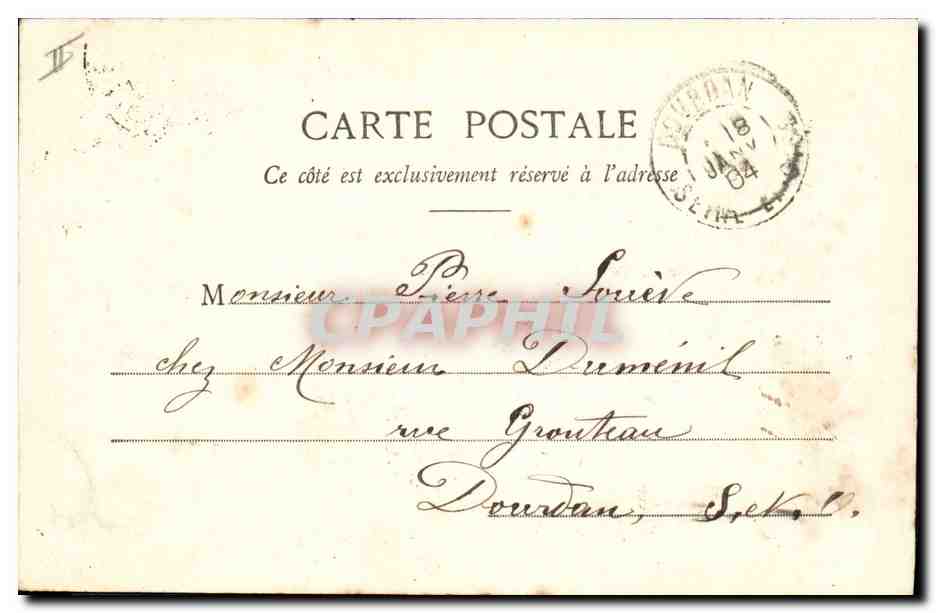 II
CARTE POSTALE
DOURDAN
18
JANV
04
SEINE ET O
Ce côté est exclusivement réservé à l'adresse
Monsieur Pierre
CPAPHIL
chez Monsieur Duménil
rue Grouteau
Dourdan, S. et. O.